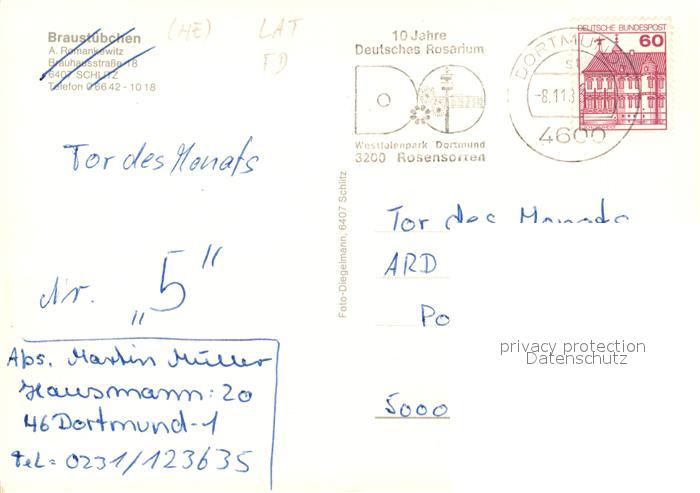 Braustübchen
A. Romankewitz
Brauhausstraße 18
6407 SCHLITZ
Telefon 0 66 42 - 10 18
(HE)
LAT
FD
10 Jahre
Deutsches Rosarium
Westfalenpark Dortmund
3200 Rosensorten
DORTMUND
-8.11.8
4600
DEUTSCHE BUNDESPOST
60
Tor des Monats
Nr. „5"
Abs. Martin Müller
Hausmann: 20
46 Dortmund-1
Tel: 0231/123635
Foto-Diegelmann, 6407 Schlitz
Tor des Monats
ARD
Po
5000
privacy protection
Datenschutz